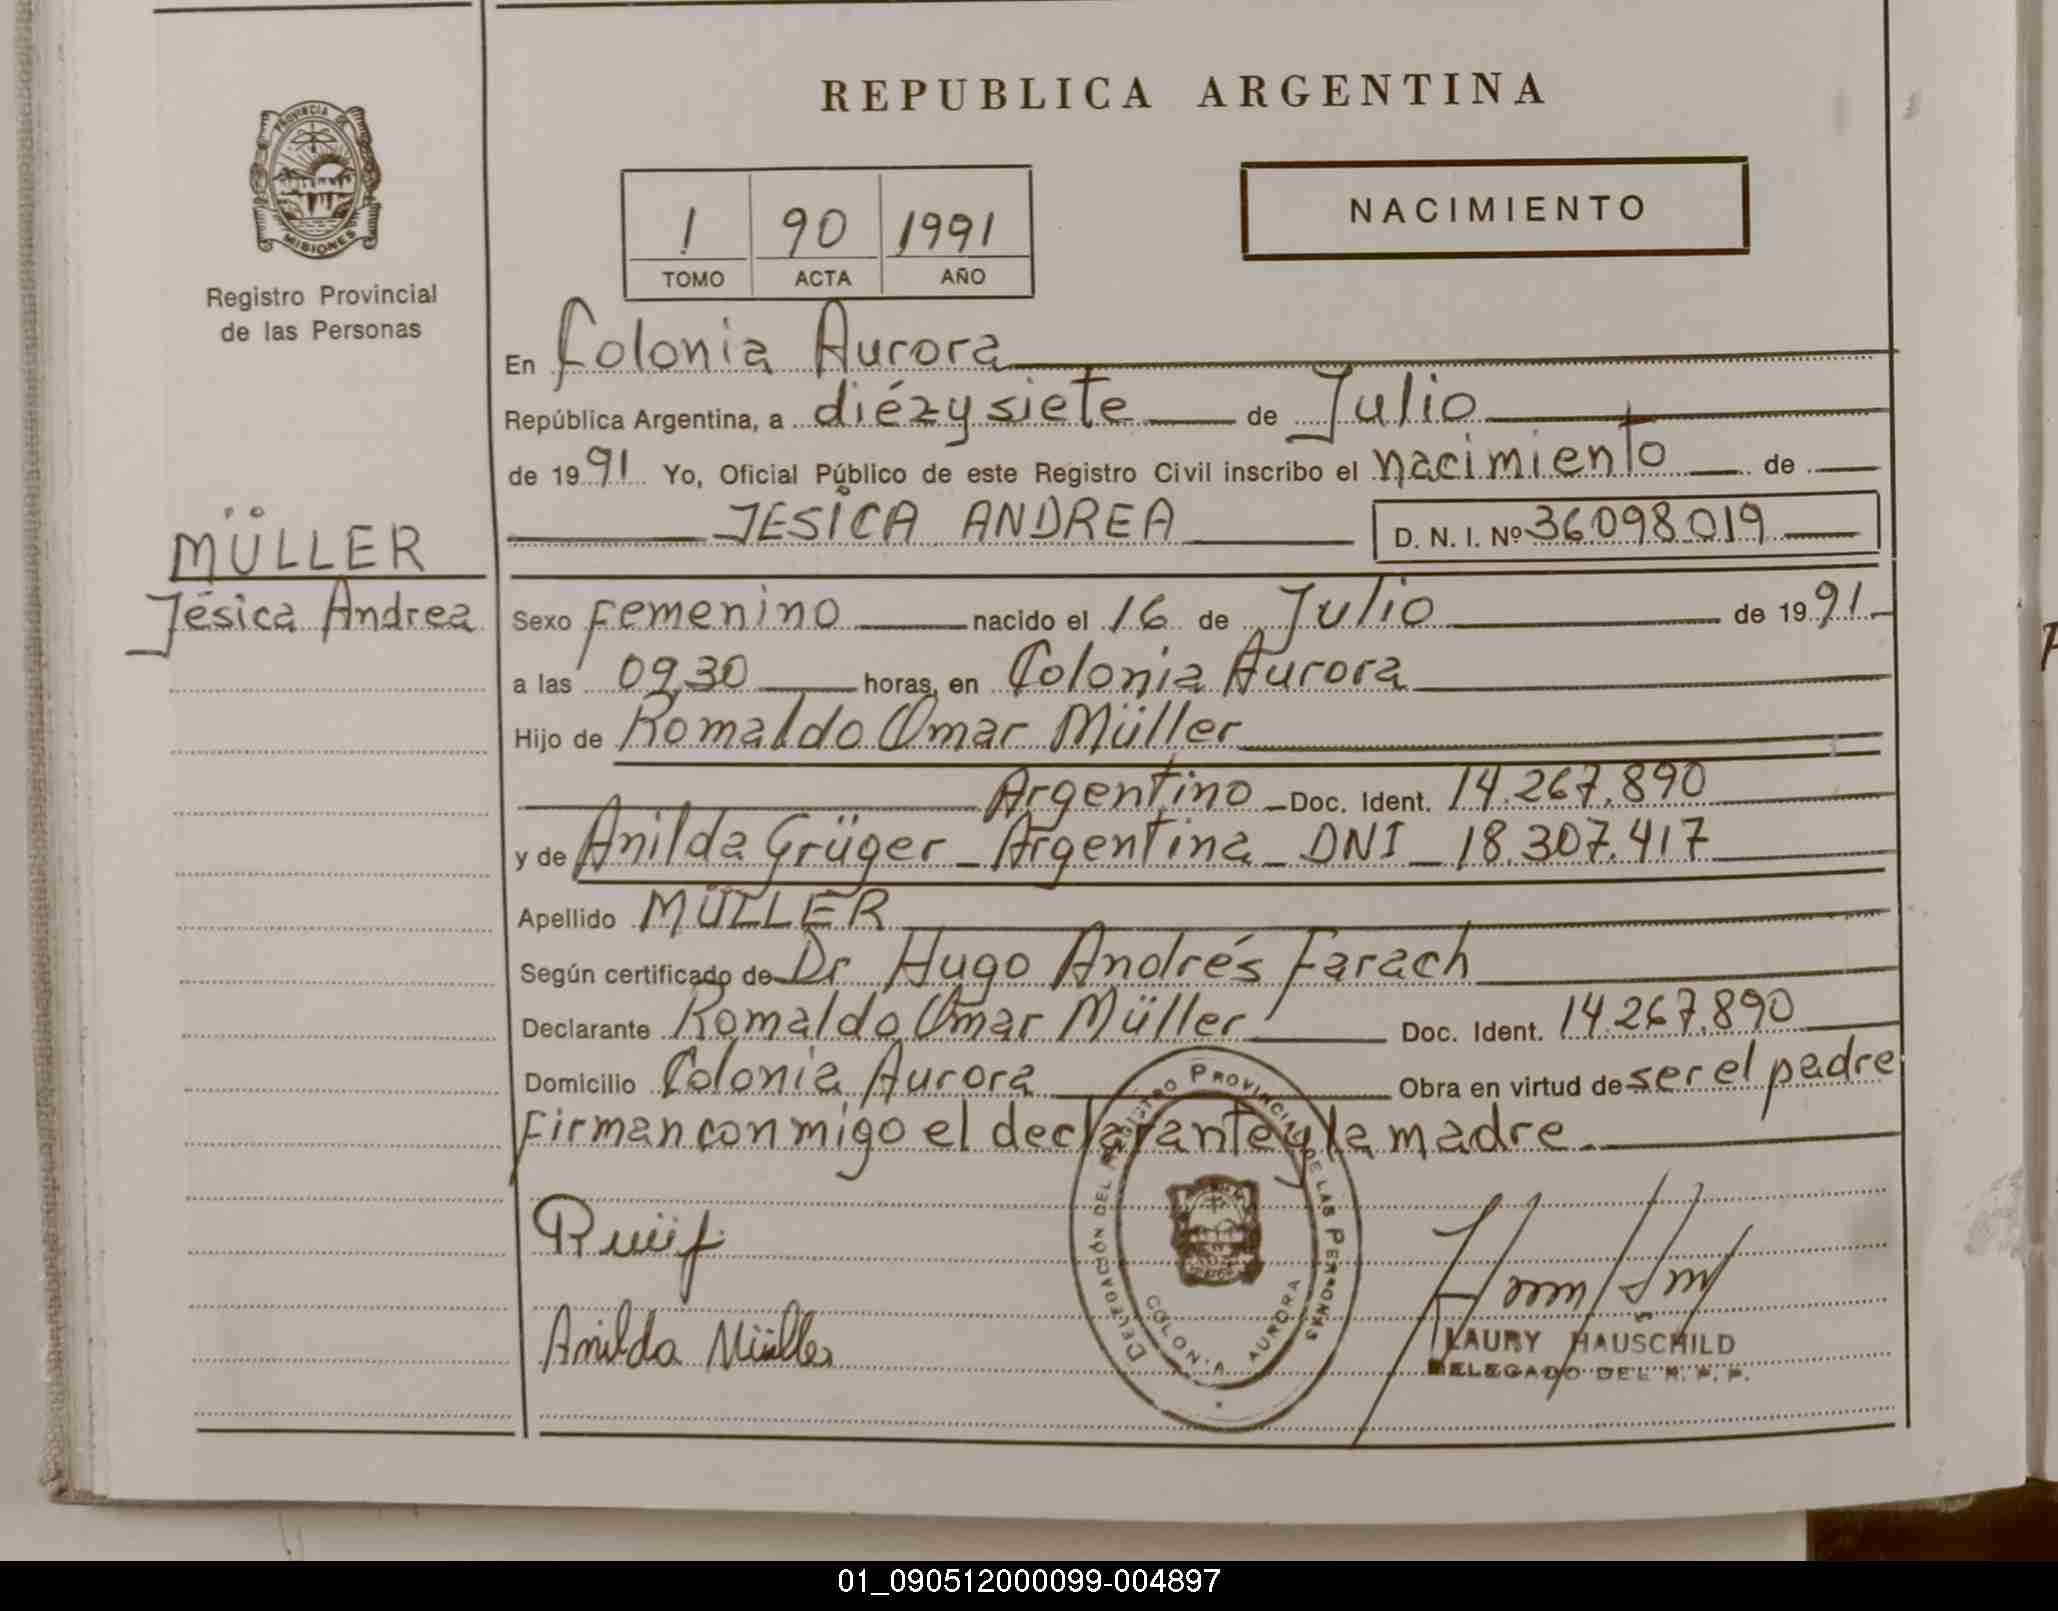 REPUBLICA ARGENTINA
PROVINCIA DE
MISIONES
Registro Provincial
de las Personas
1 90 1991
TOMO ACTA AÑO
NACIMIENTO
En Colonia Aurora
República Argentina, a diézysiete de Julio
de 1991 Yo, Oficial Público de este Registro Civil inscribo el nacimiento de
JESICA ANDREA D. N. I. Nº 36098019
MÜLLER
Jésica Andrea
Sexo Femenino nacido el 16 de Julio de 1991
a las 09,30 horas, en Colonia Aurora
Hijo de Romaldo Omar Müller
Argentino Doc. Ident. 14.267.890
y de Anilda Grüger - Argentina - DNI - 18.307.417
Apellido MÜLLER
Según certificado de Dr Hugo Andrés Farach
Declarante Romaldo Omar Müller Doc. Ident. 14.267.890
Domicilio Colonia Aurora Obra en virtud de ser el padre
Firman conmigo el declarante y la madre
DELEGACIÓN DEL REGISTRO PROVINCIAL DE LAS PERSONAS
COLONIA AURORA
Anilda Müller
LAURY HAUSCHILD
DELEGADO DEL R. P. P.
01_090512000099-004897